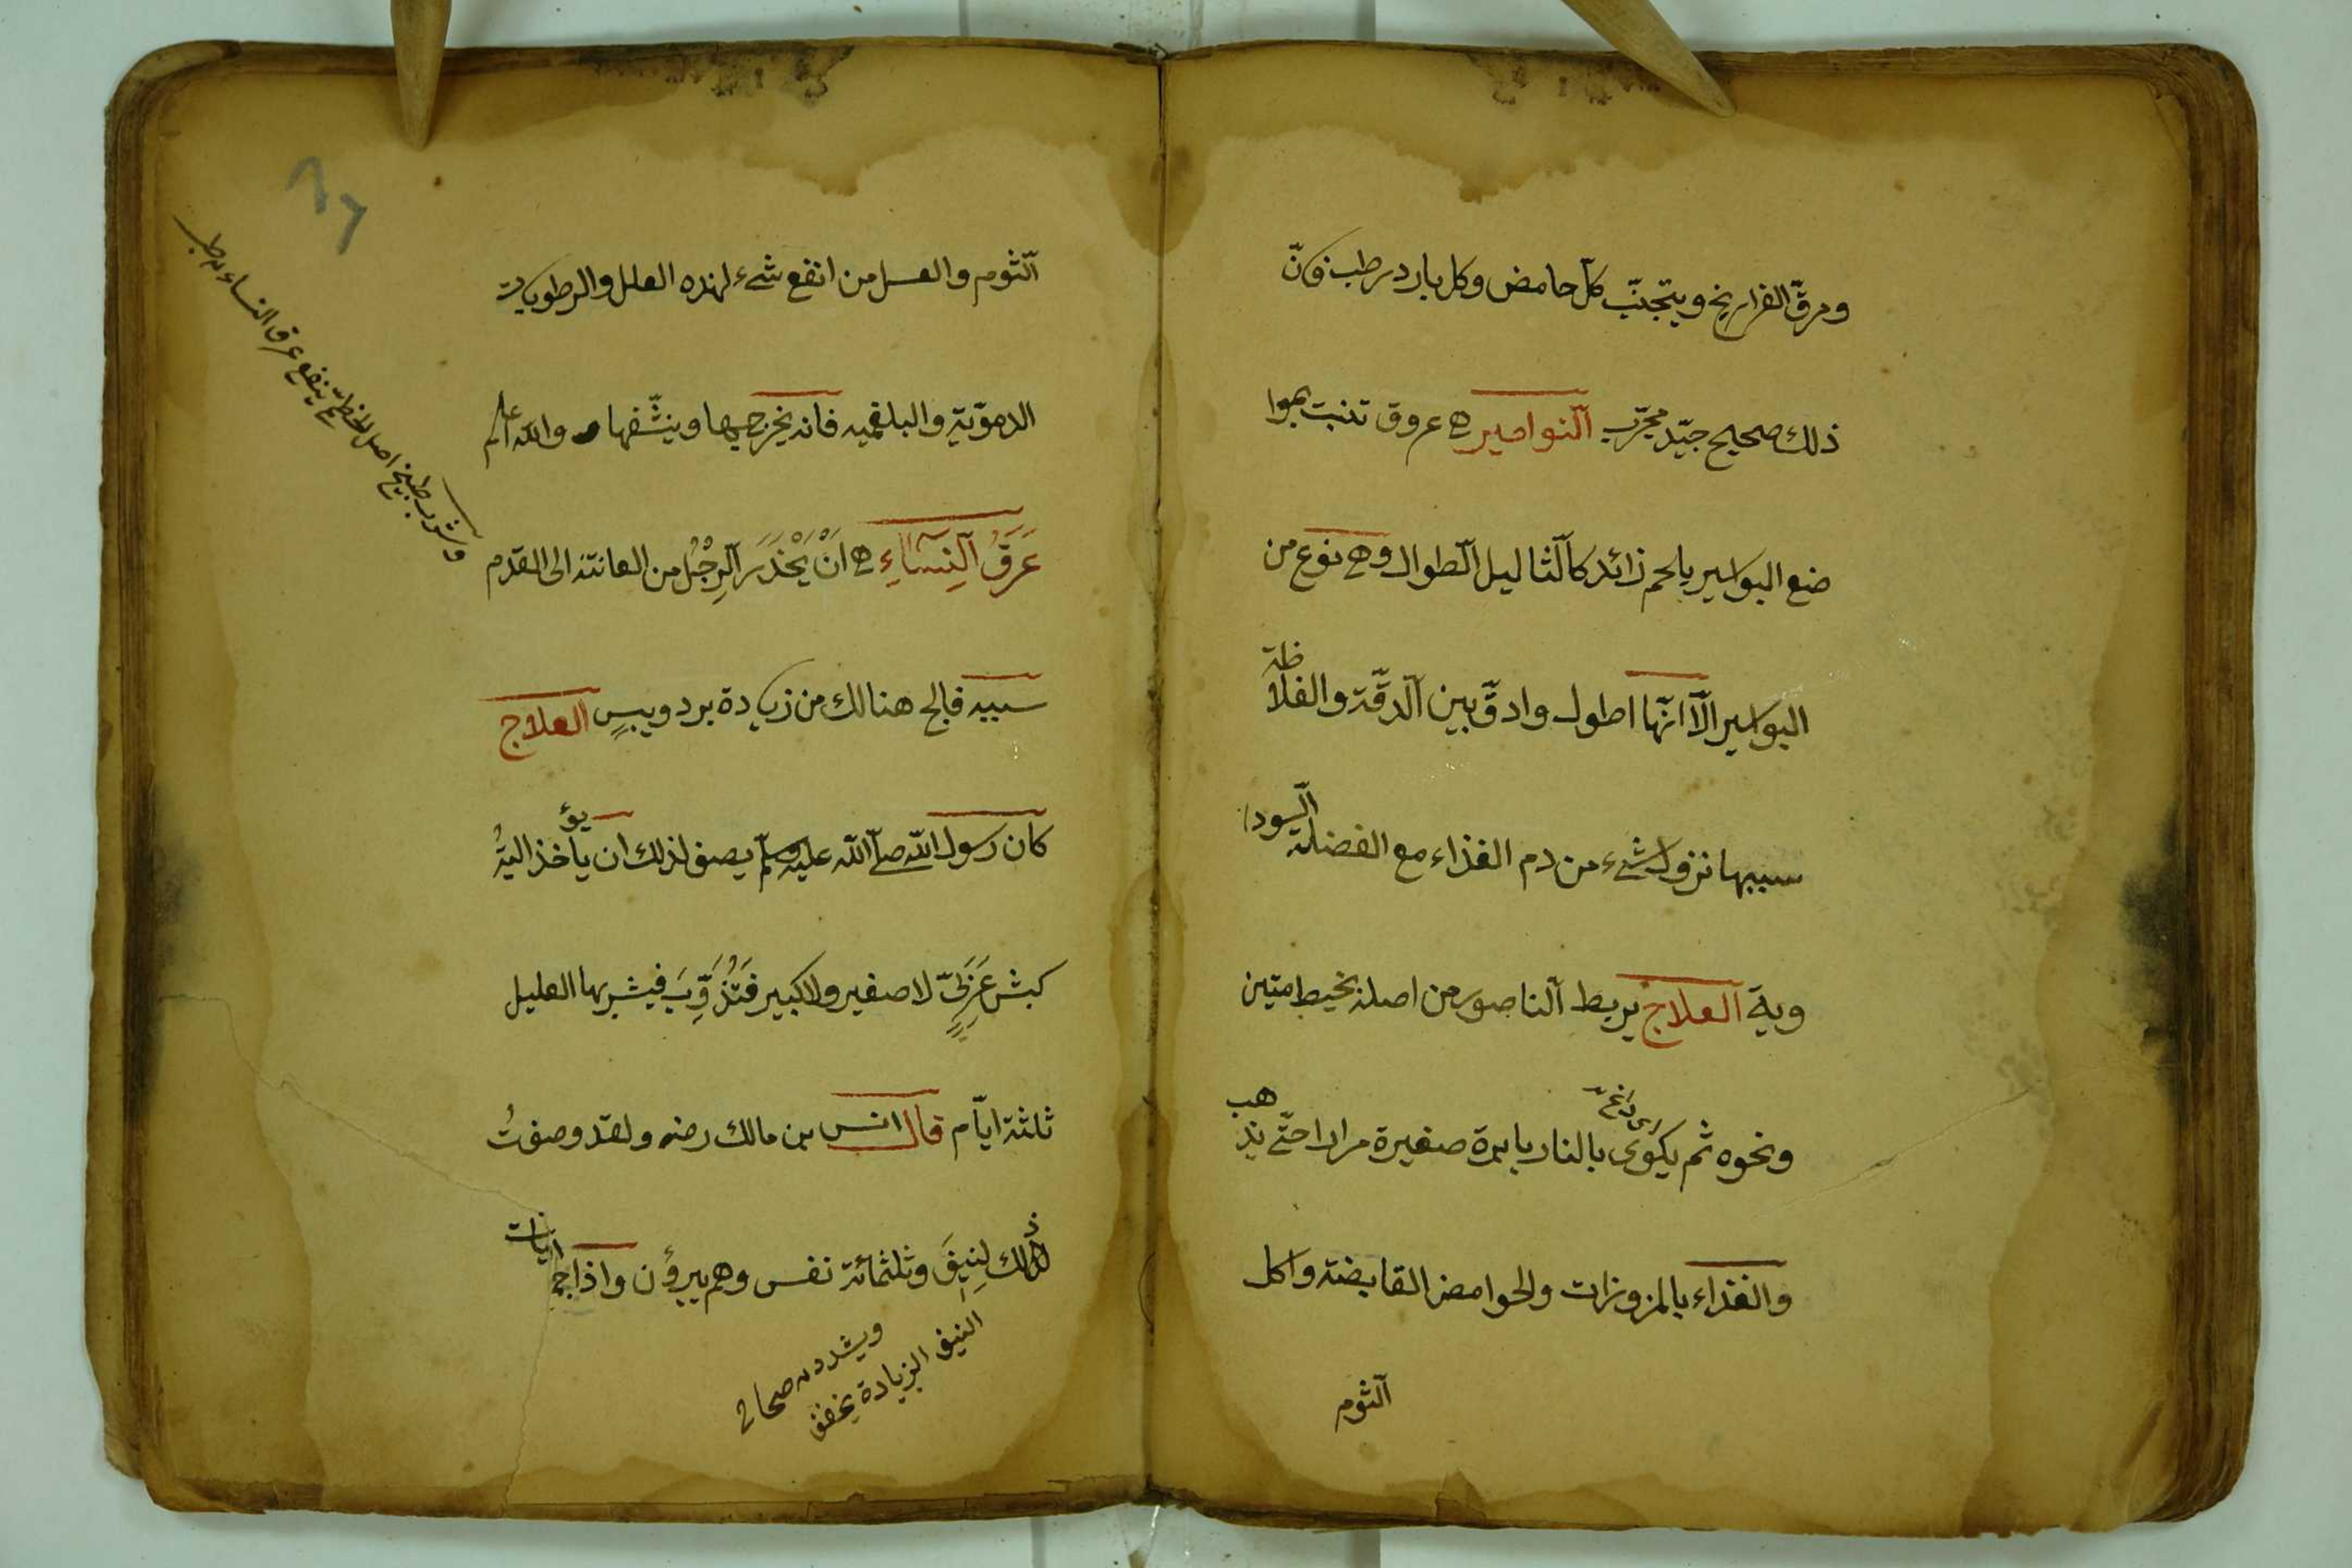 ومرقّ الفراريخ ويتجنّب كلّ حامض وكل بارد رطب فانّ
ذلك صحيح جيّد مجرّب النواصير هي عروق تنبت بموا
ضع البواسير بلحم زائد كالثاليل الطوال وهي نوع من
البواسير الّا انّها اطول وادقّ بين الدقّة والغلاظة
سببها نزول شيء من دم الغذاء مع الفضلة السودا
وية العلاج يربط الناصور من اصله بخيط متين
ونحوه ثم يكوى بالنار بابرة صغيرة مرارا حتّى يذهب
والغذاء بالمزورات والحوامض القابضة واكل
الثوم
الثّوم والعسل من انفع شيء لهذه العلل والرطوبات
الدمويّة والبلغميه فانه يخرجها وينشّفها والله اعلم
عَرَقُ النِسَاءِ هي انْ يَخْدَرَ الرِجْلُ من العانته الى القدم
سببه فالج هنالك من زيادة برد ويبسٍ العلاج
كان رسول الله صلّى الله عليه وسلّم يصف لذلك ان يأخذ اليةُ
يؤ
كبش عَرَبِيّ لا صغير ولا كبير فَتُذَوِّبَ فيشربها العليل
ثلثة ايّام قال انس بن مالك رضه ولقد وصفتُ
ذلك لِنِيِفَ وثلثمائة نفس وهم يبرؤن واذا
النيف الزيادة يخفف
ويشدد صحاح
وشرب طبيخ اصل الخطمّي ينفع عرق النساء طب